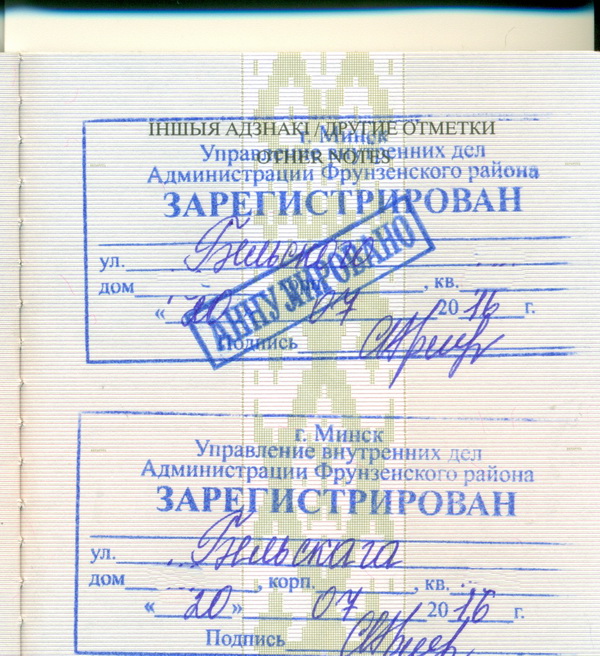 ІНШЫЯ АДЗНАКІ / ДРУГИЕ ОТМЕТКИ
OTHER NOTES
г. Минск
Управление внутренних дел
Администрации Фрунзенского района
ЗАРЕГИСТРИРОВАН
ул. Бельскага
дом , кв.
АННУЛИРОВАНО
«20 07 2016 г.
Подпись
г. Минск
Управление внутренних дел
Администрации Фрунзенского района
ЗАРЕГИСТРИРОВАН
ул. Бельскага
дом , корп. , кв.
«20» 07 2016 г.
Подпись